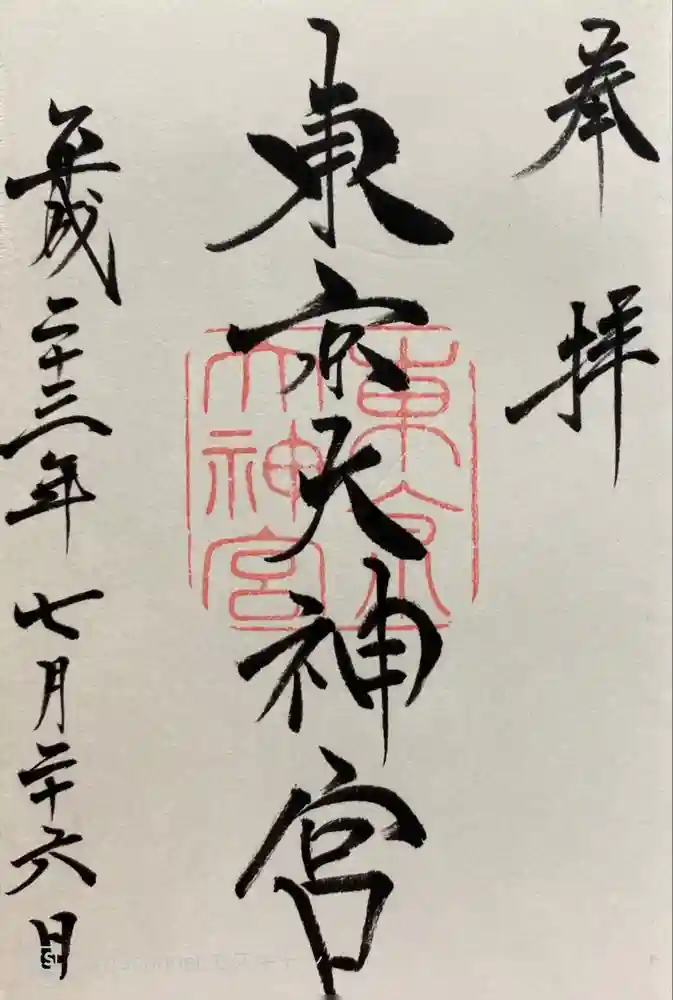 奉拝
東京大神宮
平成二十三年七月二十六日
東京
大神宮